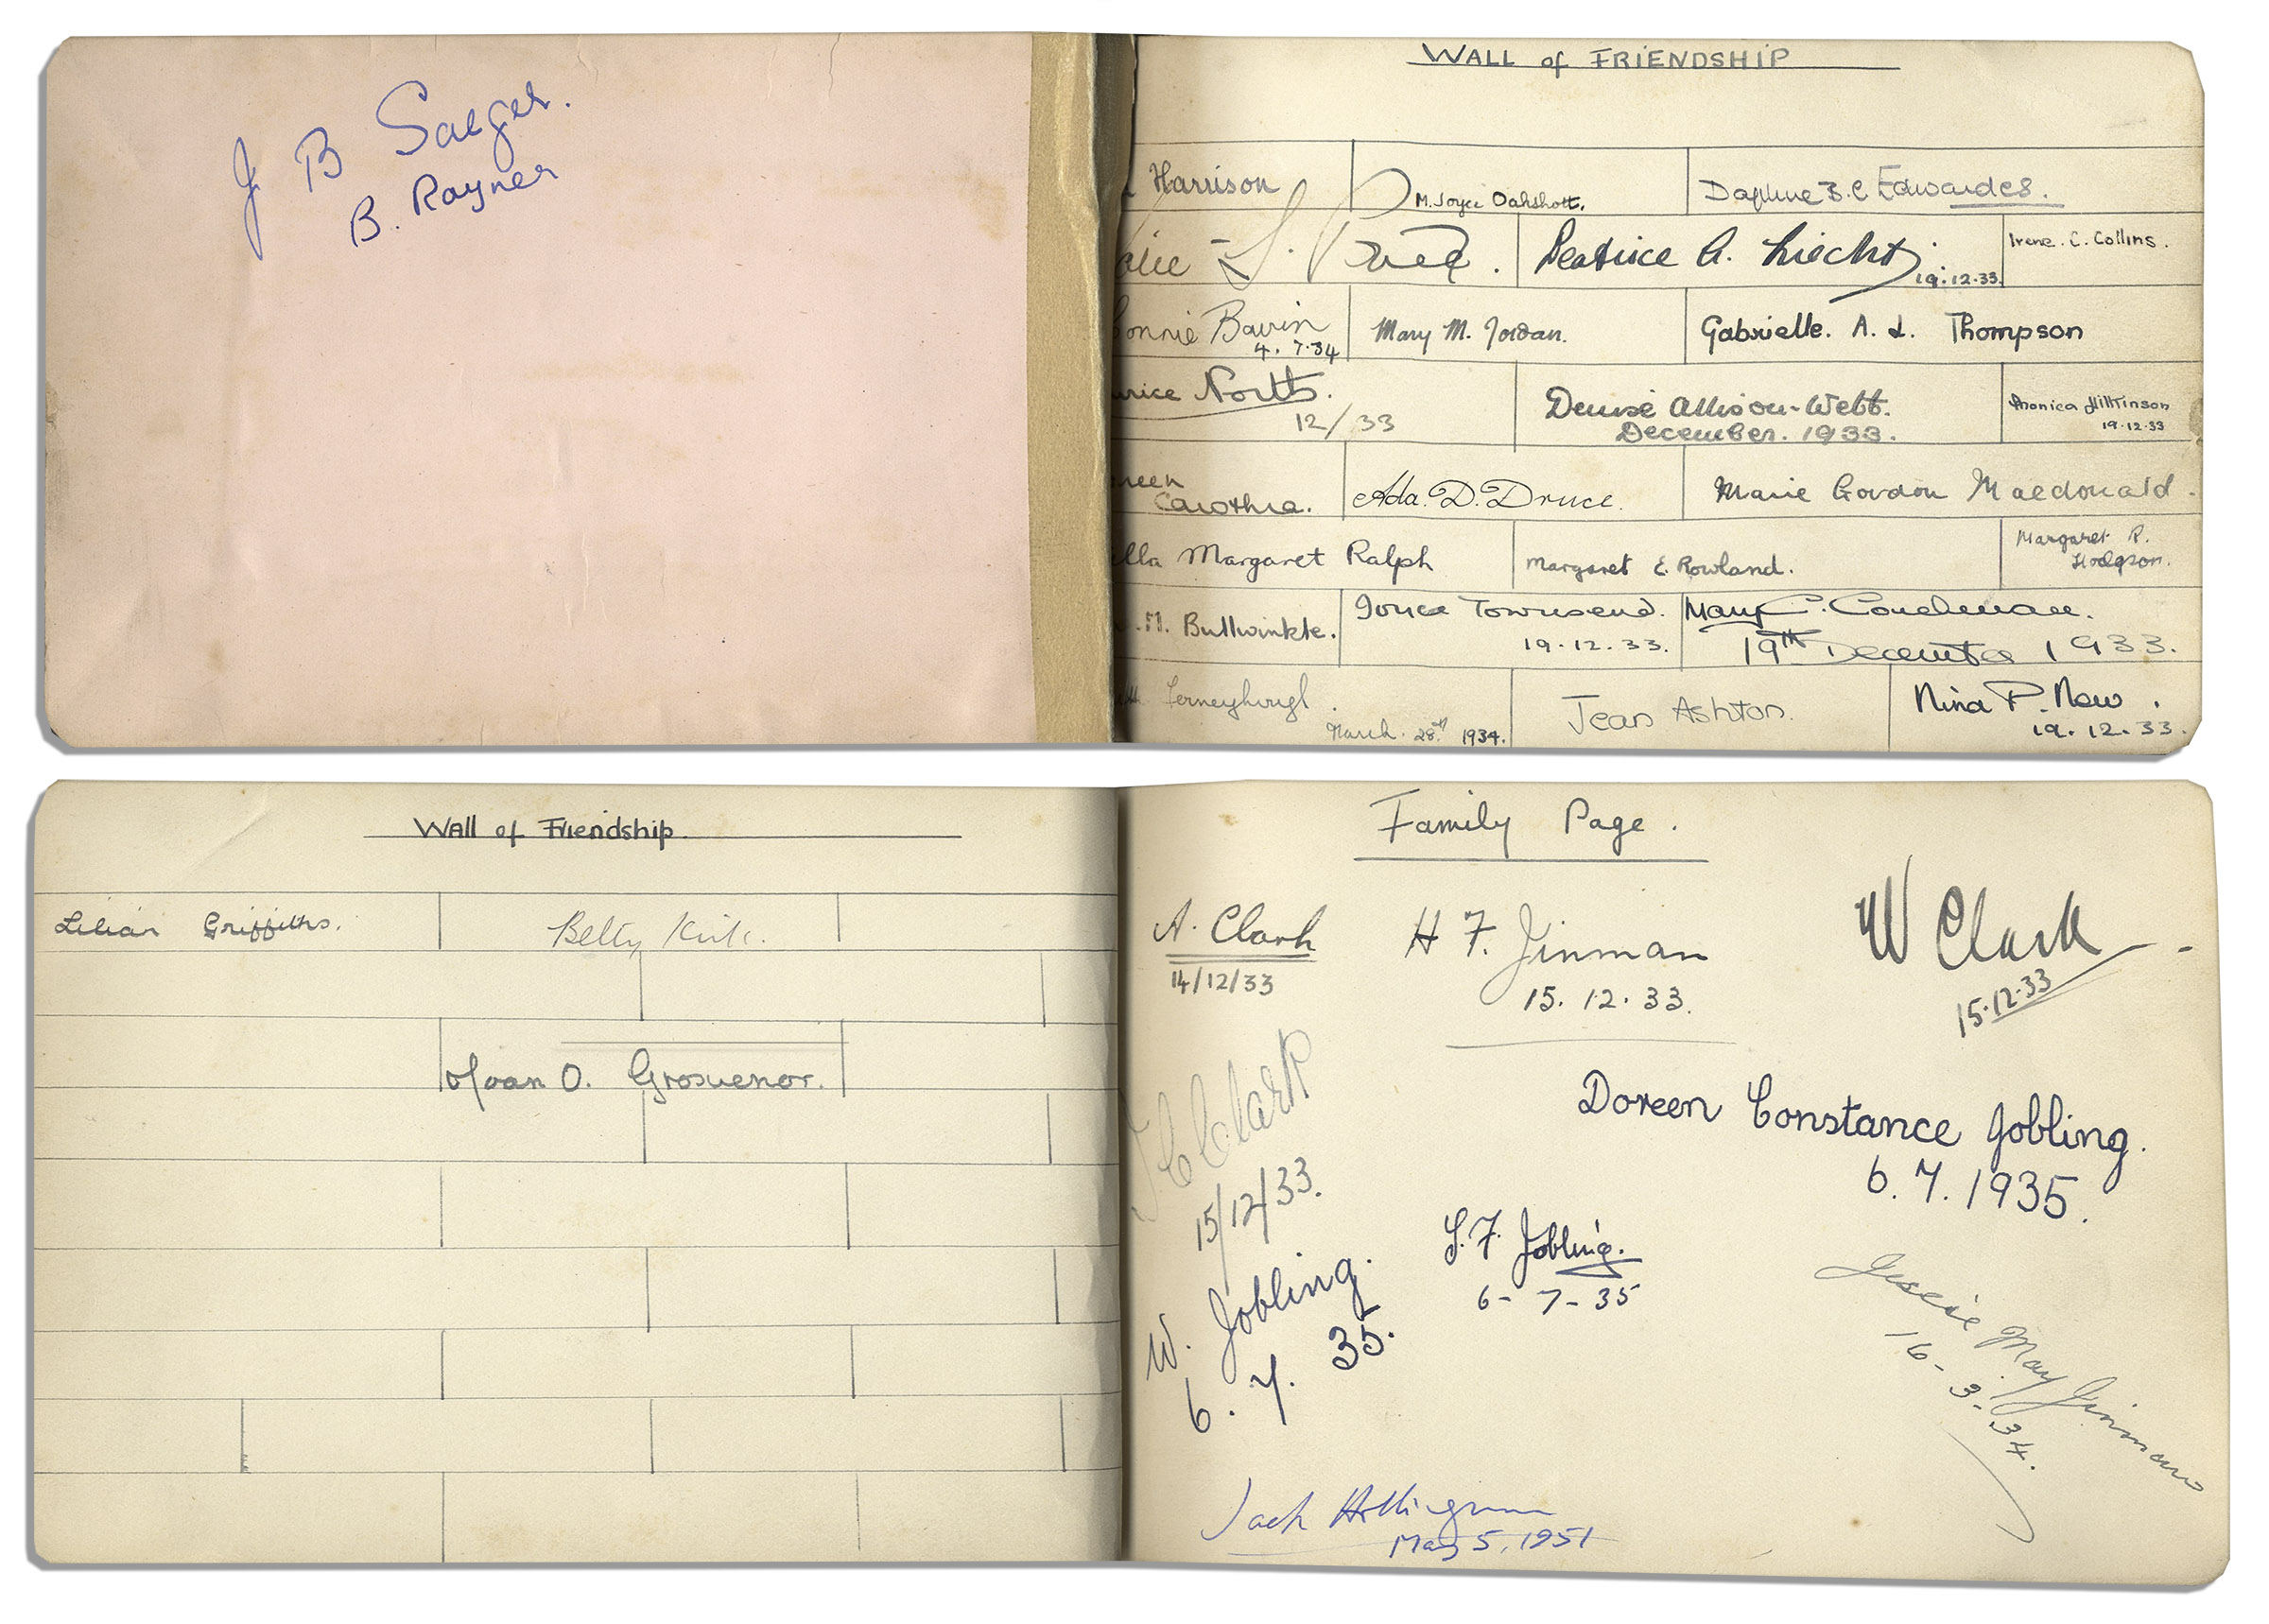 J B Saeger.
B. Rayner
WALL of FRIENDSHIP
Harrison
M. Joyce Oakshott.
Daphne B. C Edwardes.
L.
Beatrice A. Liechti
19.12.33.
Irene. C. Collins.
Bavin
4. 7.34
Mary M. Jordan.
Gabrielle. A. L. Thompson
North.
12/33
Denise Allison-Webb.
December. 1933.
Monica Wilkinson
19.12.33
Ada. D. Druce.
Marie Gordon Macdonald.
Margaret Ralph
Margaret E. Rowland.
Margaret R.
Hodgson.
M. Bullwinkle.
Joyce Townsend.
19.12.33.
Mary C.
19th December 1933.
March. 28th 1934.
Jean Ashton.
Nina P. New.
19.12.33.
Wall of Friendship.
Lilian Griffiths.
Betty Kirk.
Joan O. Grosvenor.
Family Page.
A. Clark
14/12/33
H F. Jinman
15.12.33.
W Clark
15.12.33
Clark
15/12/33.
Doreen Constance Jobling.
6.7.1935.
W. Jobling.
6.7.35.
S. F. Jobling.
6-7-35
Jessie May Jinman
16-3-34.
Jack
May 5, 1951